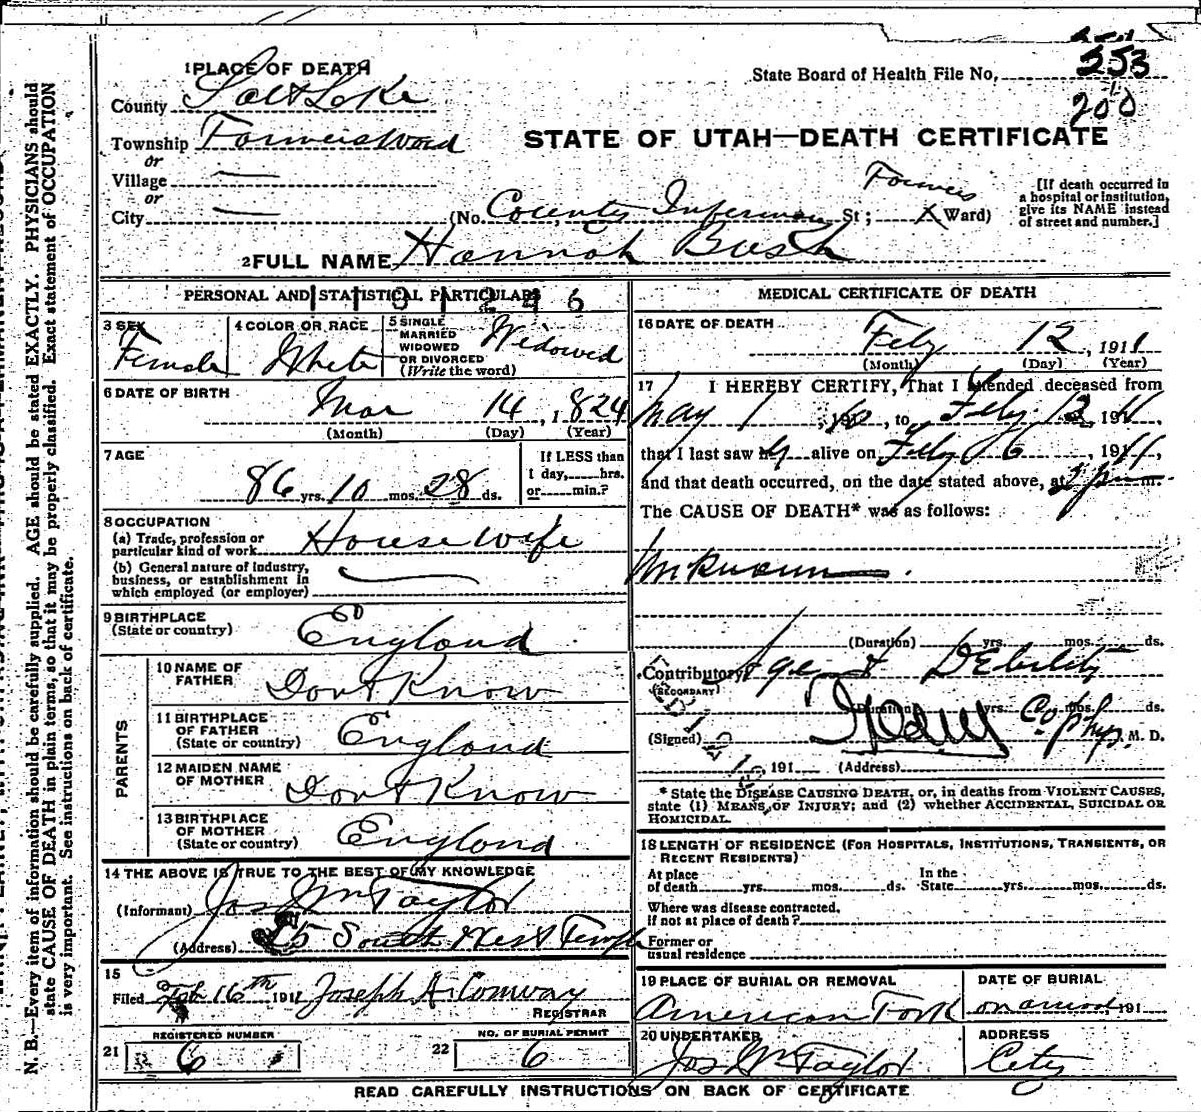 1 PLACE OF DEATH
County Salt Lake
Township Farmers Ward
or
Village —
or
City —
State Board of Health File No. 353
200
STATE OF UTAH—DEATH CERTIFICATE
Farmers
(No. County Infirmary St; X Ward)
[If death occurred in
a hospital or institution,
give its NAME instead
of street and number.]
2 FULL NAME Hannah Bush
PERSONAL AND STATISTICAL PARTICULARS
3 SEX
Female
4 COLOR OR RACE
White
5 SINGLE
MARRIED
WIDOWED
OR DIVORCED
(Write the word)
Widowed
6 DATE OF BIRTH
Mar 14, 1824
(Month) (Day) (Year)
7 AGE
86 yrs. 10 mos. 28 ds.
If LESS than
1 day, hrs.
or min.?
8 OCCUPATION
(a) Trade, profession or
particular kind of work House Wife
(b) General nature of industry,
business, or establishment in
which employed (or employer)
9 BIRTHPLACE
(State or country) England
PARENTS
10 NAME OF
FATHER Dont Know
11 BIRTHPLACE
OF FATHER
(State or country) England
12 MAIDEN NAME
OF MOTHER Dont Know
13 BIRTHPLACE
OF MOTHER
(State or country) England
14 THE ABOVE IS TRUE TO THE BEST OF MY KNOWLEDGE
(Informant) Jos Wm Taylor
(Address) 25 South West Temple
15
Filed Feb 16th 1911 Joseph H Conway
REGISTRAR
REGISTERED NUMBER
21 6
NO. OF BURIAL PERMIT
22 6
MEDICAL CERTIFICATE OF DEATH
16 DATE OF DEATH
Feby 12, 1911
(Month) (Day) (Year)
17 I HEREBY CERTIFY, That I attended deceased from
May 1, 1910, to Feby 12, 1911,
that I last saw h alive on Feby 6, 1911,
and that death occurred, on the date stated above, at 2 pm m.
The CAUSE OF DEATH* was as follows:
Unknown.
(Duration) yrs. mos. ds.
Contributory Age & Debility
(SECONDARY)
(Duration) yrs. mos. ds.
(Signed) Co Phys. M. D.
191 (Address)
* State the DISEASE CAUSING DEATH, or, in deaths from VIOLENT CAUSES,
state (1) MEANS OF INJURY; and (2) whether ACCIDENTAL, SUICIDAL OR
HOMICIDAL.
18 LENGTH OF RESIDENCE (FOR HOSPITALS, INSTITUTIONS, TRANSIENTS, OR
RECENT RESIDENTS)
At place
of death yrs. mos. ds.
In the
State yrs. mos. ds.
Where was disease contracted.
if not at place of death?
Former or
usual residence
19 PLACE OF BURIAL OR REMOVAL
American Fork
DATE OF BURIAL
191
20 UNDERTAKER
Jos Wm Taylor
ADDRESS
City
READ CAREFULLY INSTRUCTIONS ON BACK OF CERTIFICATE
N. B.—Every item of information should be carefully supplied. AGE should be stated EXACTLY. PHYSICIANS should
state CAUSE OF DEATH in plain terms, so that it may be properly classified. Exact statement of OCCUPATION
is very important. See instructions on back of certificate.